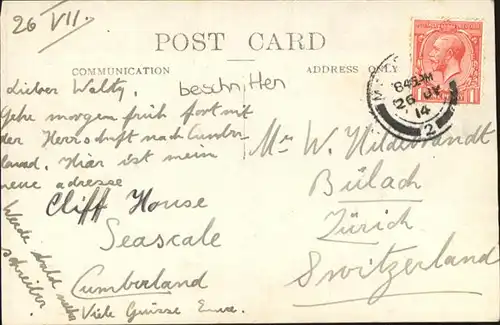 26 VII.
POST CARD
COMMUNICATION
ADDRESS ONLY
beschnitten
dieber Walty,
Gehe morgen früh fort mit
der Herrschaft nach Cumber
land. Hier ist mein
neue adresse
Cliff House
Seascale
Cumberland
Viele Grüsse
Werde bald mehr
schreiben.
Mr W. Hildebrandt
Bülach
Zürich
Switzerland
845 PM
26 JY
14
2
1